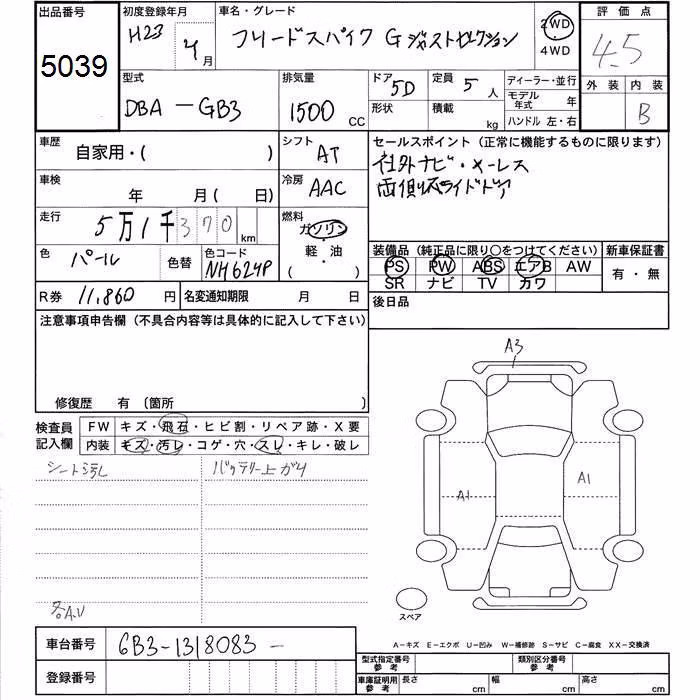 出品番号 初度登録年月 車名・グレード 評価点
5039 H23 4月 フリードスパイク G ジャストセレクション 2WD 4WD 4.5
型式 排気量 ドア 5D 定員 5人 ディーラー・並行 外装 内装
DBA-GB3 1500 CC 形状 積載 kg モデル年式 年 B
ハンドル 左・右
車歴 自家用・( ) シフト AT セールスポイント(正常に機能するものに限ります)
社外ナビ・キーレス
車検 年 月( 日) 冷房 AAC 両側スライドドア
走行 5万1千370km 燃料 ガソリン・軽油( )
色 パール 色替 色コード NH624P 装備品(純正品に限り○をつけてください) 新車保証書
PS PW ABS エアB AW 有・無
SR ナビ TV カワ
R券 11,860円 名変通知期限 月 日 後日品
注意事項申告欄(不具合内容等は具体的に記入して下さい)
修復歴 有 〔箇所
A3
検査員記入欄 FW キズ・飛石・ヒビ割・リペア跡・X要
内装 キズ・汚レ・コゲ・穴・スレ・キレ・破レ
シート汚レ バッテリー上ガリ
A1 A1
各A.U
スペア
A-キズ E-エクボ U-凹み W-補修跡 S-サビ C-腐食 XX-交換済
車台番号 GB3-1318083-
登録番号
型式指定番号参考 類別区分番号参考
車庫証明用参考 長さ cm 幅 cm 高さ cm